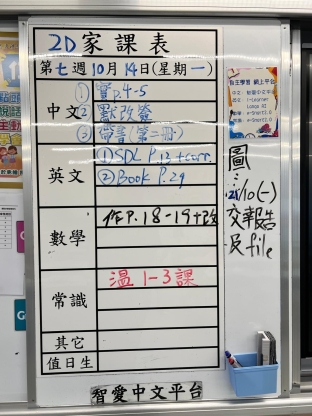 2D 家課表
第七週10月14日(星期一)
中文
① 寶p.4-5
② 默改簽
③ 帶書(第二冊)
英文
① SDL P.12+corr.
② Book P.29
數學
作P.18-19+改
常識
温1-3課
其它
值日生
智愛中文平台
自主學習 網上平台
圖:
21/10(一)
交報告
及file